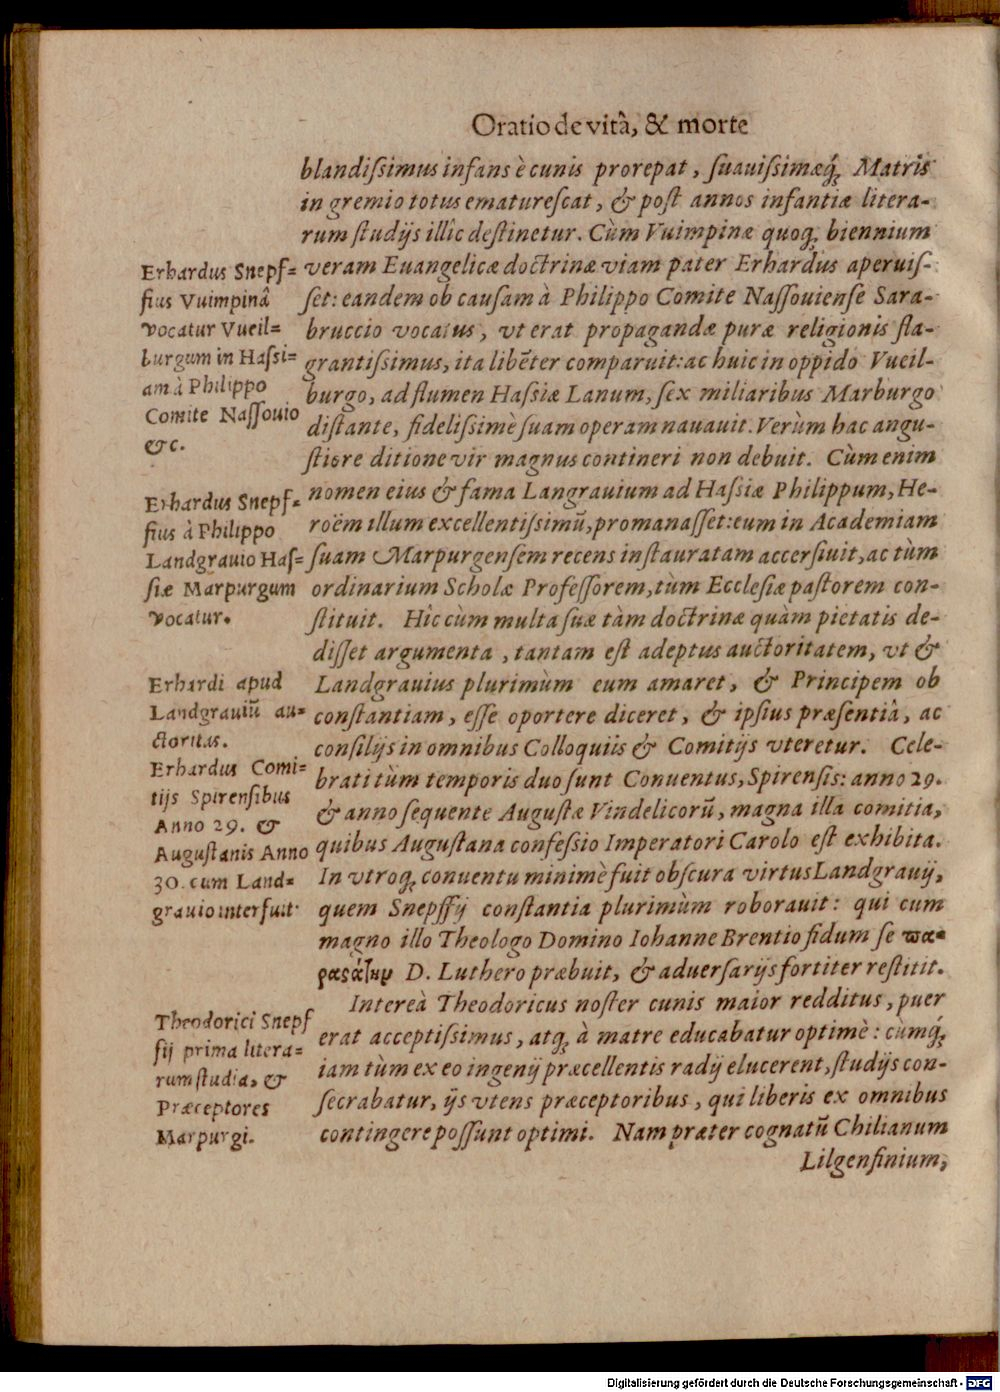 Oratio de vitâ, & morte
blandiſsimus infans è cunis prorepat, ſuauiſsimæq́; Matris
in gremio totus ematureſcat, & poſt annos infantiæ litera-
rum ſtudijs illîc deſtinetur. Cùm Vuimpinæ quoq; biennium
veram Euangelicæ doctrinæ viam pater Erhardus aperuiſ-
ſet: eandem ob cauſam à Philippo Comite Naſſouienſe Sara-
bruccio vocatus, vt erat propagandæ puræ religionis fla-
grantiſsimus, ita libẽter comparuit: ac huic in oppido Vueil-
burgo, ad flumen Haſsiæ Lanum, ſex miliaribus Marburgo
diſtante, fideliſsimè ſuam operam nauauit. Verùm hac angu-
ſtiore ditione vir magnus contineri non debuit. Cùm enim
nomen eius & fama Langrauium ad Haſsiæ Philippum, He-
roëm illum excellentiſsimũ, promanaſſet: eum in Academiam
ſuam Marpurgenſem recens inſtauratam accerſiuit, ac tùm
ordinarium Scholæ Profeſſorem, tùm Eccleſiæ paſtorem con-
ſtituit. Hîc cùm multa ſuæ tàm doctrinæ quàm pietatis de-
diſſet argumenta, tantam eſt adeptus auctoritatem, vt &
Landgrauius plurimùm eum amaret, & Principem ob
conſtantiam, eſſe oportere diceret, & ipſius præſentiâ, ac
conſilijs in omnibus Colloquiis & Comitijs vteretur. Cele-
brati tùm temporis duo ſunt Conuentus, Spirenſis: anno 29.
& anno ſequente Auguſtæ Vindelicorũ, magna illa comitia,
quibus Auguſtana confeſsio Imperatori Carolo eſt exhibita.
In vtroq; conuentu minimè fuit obſcura virtus Landgrauij,
quem Snepffij conſtantia plurimùm roborauit: qui cum
magno illo Theologo Domino Iohanne Brentio fidum ſe ϖα-
ραϛάτην D. Luthero præbuit, & aduerſarijs fortiter reſtitit.
Intereà Theodoricus noſter cunis maior redditus, puer
erat acceptiſsimus, atq; à matre educabatur optimè: cùmq́;
iam tùm ex eo ingenij præcellentis radij elucerent, ſtudijs con-
ſecrabatur, ijs vtens præceptoribus, qui liberis ex omnibus
contingere poſſunt optimi. Nam præter cognatũ Chilianum
Lilgenfinium,
Erhardus Snepf-
fius Vuimpinâ
vocatur Vueil-
burgum in Haſsi-
am à Philippo
Comite Naſſouio
&c.
Erhardus Snepf-
fius à Philippo
Landgrauio Haſ-
ſiæ Marpurgum
vocatur.
Erhardi apud
Landgrauiũ au-
ctoritas.
Erhardus Comi-
tijs Spirenſibus
Anno 29. &
Auguſtanis Anno
30. cum Land-
grauio interfuit.
Theodorici Snepf
fij prima litera-
rum ſtudia, &
Præceptores
Marpurgi.
Digitalisierung gefördert durch die Deutsche Forschungsgemeinschaft - DFG